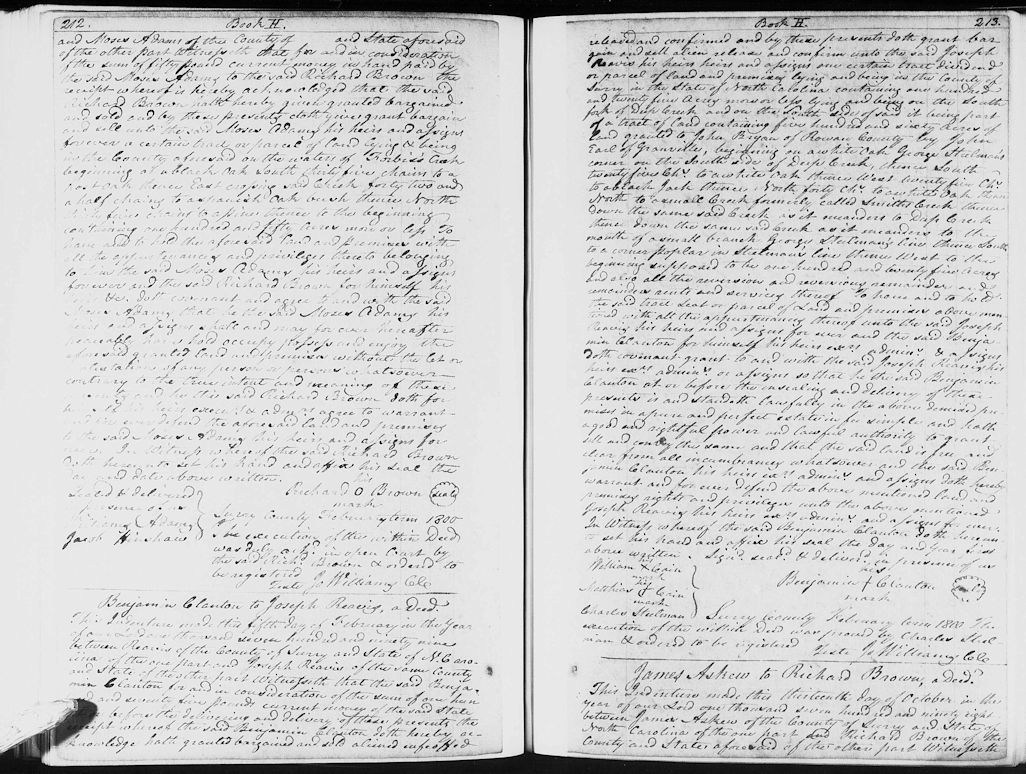 212. Book H.
and Moses Adams of the County of and State aforesaid
of the other part Witnesseth that for and in consideration
of the sum of fifty pound current money in hand paid by
the said Moses Adams to the said Richard Brown the
receipt whereof is hereby acknowledged that the said
Richard Brown hath hereby given granted bargained
and sold and by these presents doth give grant bargain
and sell unto the said Moses Adams his heirs and assigns
forever a certain tract or parcel of land lying & being
in the County aforesaid on the waters of Forbiss Creek
beginning at a black Oak South thirty five chains to a
Post Oak thence East crossing said Creek forty two and
a half chains to a spanish Oak bush thence North
thirty five chains to a pine thence to the beginning
containing one hundred and fifty acres more or less To
have and to hold the aforesaid land and premises with
all the appurtenances and privileges thereto belonging
to him the said Moses Adams his heirs and assigns
forever and the said Richard Brown for himself his
heirs &c. doth covenant and agree to and with the said
Moses Adams that he the said Moses Adams his
heirs and assigns shall and may for ever hereafter
peaceably have hold occupy possess and enjoy the
aforesaid granted land and premises without the let or
molestation of any person or persons whatsoever
contrary to the true intent and meaning of these
presents and he the said Richard Brown doth for
himself his heirs execrs. & admrs. agree to warrant
and for ever defend the aforesaid land and premises
to the said Moses Adams his heirs and assigns for
ever In Witness whereof the said Richard Brown
doth hereunto set his hand and affix his seal the
day and date above written.
Sealed & delivered his
in presence of us Richard O Brown (seal)
mark
Adams
Jacob Hinshaw
Surry County February term 1800
The execution of the within Deed
was duly ackd. in open Court by
the said Richd. Brown & ordered to
be registered Teste Jo Williams Clk
Benjamin Clanton to Joseph Reavis, a deed.
This Indenture made this fifth day of February in the Year
of our Lord one thousand seven hundred and ninety nine
between Reavis of the County of Surry and State of N. Caro-
lina of the one part and Joseph Reavis of the same County
and State of the other part Witnesseth that the said Benja-
min Clanton for and in consideration of the sum of one hun
dred and seventy five pounds current money of the said State
before the delivering and delivery of these presents the
receipt whereof the said Benjamin Clanton doth hereby ac-
knowledge hath granted bargained and sold aliened enfeoffed
Book H. 213.
released and confirmed and by these presents doth grant bar
gain and sell alien release and confirm unto the said Joseph
Reavis his heirs heirs and assigns one certain tract piece and
or parcel of land and premises lying and being in the County of
Surry in the State of North Carolina containing one hundred
and twenty five acres more or less lying and being on the South
fork of Deep Creek and on the South side of said it being part
of a tract of land containing five hundred and sixty acres of
land granted to John Bryan of Rowan County by John
Earl of Granville, beginning on a white Oak George Steelman's
corner on the South side of Deep Creek thence South
twenty five Chs. to a white Oak thence West twenty five Chs.
to a black Jack thence North forty Chs. to a white Oak then
North to a small Creek formerly called Smiths Creek thence
down the same said Creek as it meanders to Deep Creek
thence down the same said Creek as it meanders to the
mouth of a small branch George Steelmans line thence South
to a corner poplar in Steelmans line thence West to the
beginning supposed to be one hundred and twenty five acres
and also all the reversion and reversions remainder and
remainders rents and services thereof To have and to hold
the said tract Seat or parcel of Land and premises above men
tioned with all the appurtenances thereof unto the said Joseph
Reavis his heirs and assigns for ever and the said Benja-
min Clanton for himself his heirs exrs. adminrs. & assigns
doth covenant grant to and with the said Joseph Reavis his
heirs exrs. adminrs. or assigns so that he the said Benjamin
Clanton at or before the ensealing and delivery of these
presents is and standeth lawfully in the above demised pre
mises in a pure and perfect estate in fee simple and hath
a good and rightful power and lawful authority to grant
sell and convey the same and that the said land is free and
clear from all incumbrances whatsoever and the said Ben-
jamin Clanton his heirs exrs. adminrs. and assigns doth hereby
warrant and for ever defend the above mentioned land and
premises rights and privileges unto the above mentioned
Joseph Reavis his heirs exrs. adminrs. and assigns for ever.
In Witness whereof the said Benjamin Clanton doth hereun-
to set his hand and affix his seal the day and Year first
above written. Signd. seald. & deliverd. in presence of us
William + Cain his
his Benjamin + Clanton
mark mark
Matthias + Cain
mark
Charles Steelman
Surry County February term 1800 The
execution of the within deed was proved by Charles Steel
man & ordered to be registered Teste Jo Williams Clk
James Askew to Richard Brown, a deed.
This Indenture made this thirteenth day of October in the
year of our Lord one thousand seven hundred and ninety eight
between James Askew of the County of Surry and State of
North Carolina of the one part and Richard Brown of the
County and State aforesaid of the other part Witnesseth